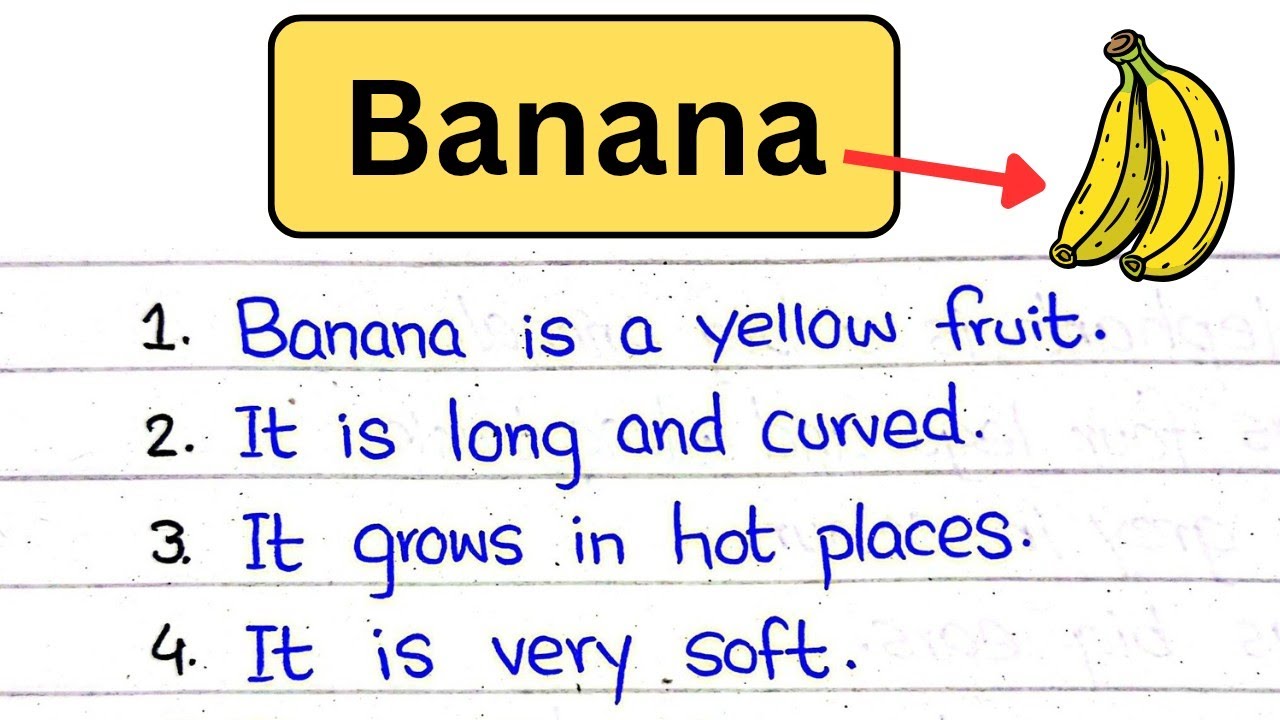 Banana
1. Banana is a yellow fruit.
2. It is long and curved.
3. It grows in hot places.
4. It is very soft.